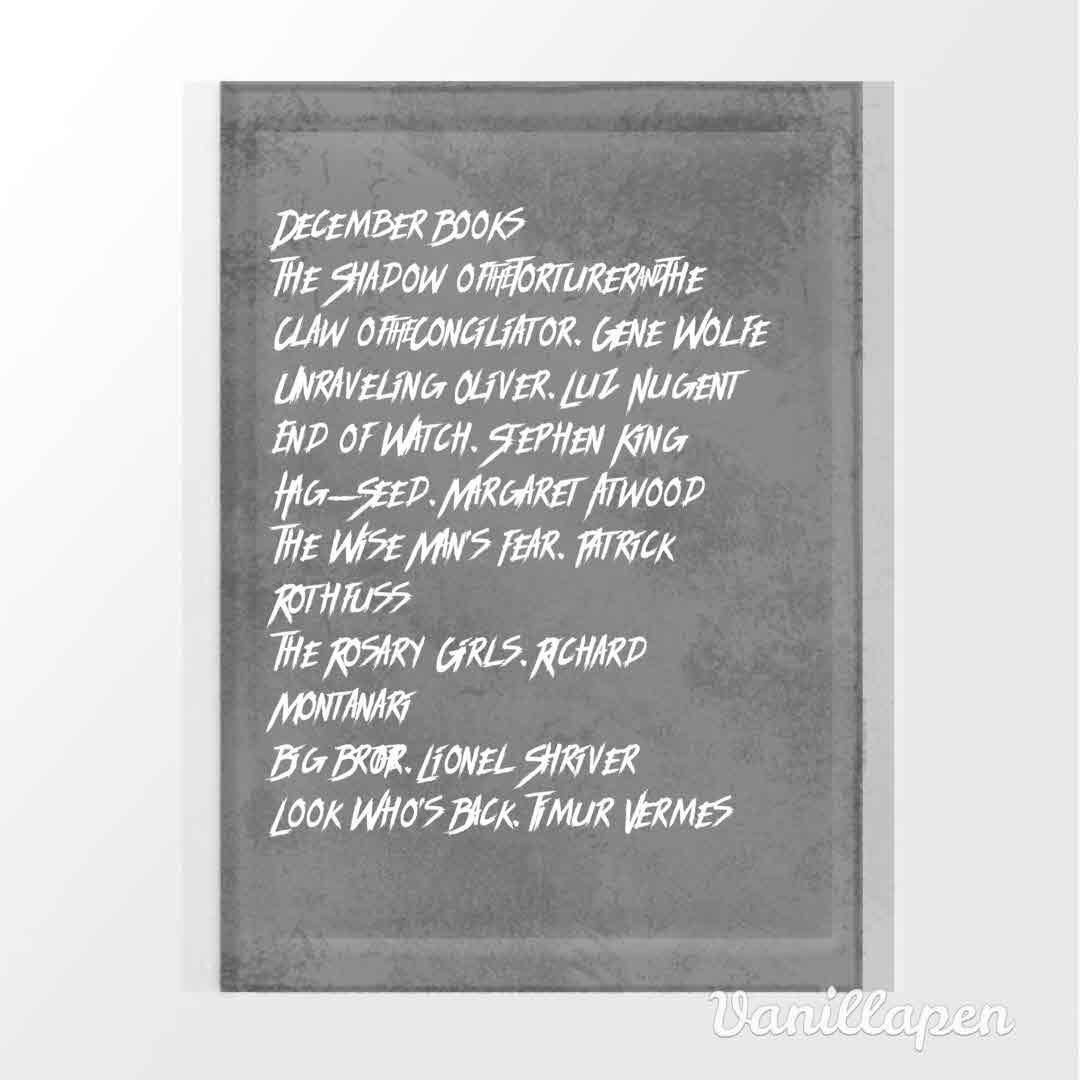 December Books
The Shadow of the Torturer and the
Claw of the Conciliator. Gene Wolfe
Unraveling Oliver. Luz Nugent
End of Watch. Stephen King
Hag-Seed. Margaret Atwood
The Wise Man's Fear. Patrick
Rothfuss
The Rosary Girls. Richard
Montanari
Big Brother. Lionel Shriver
Look Who's Back. Timur Vermes
Vanillapen